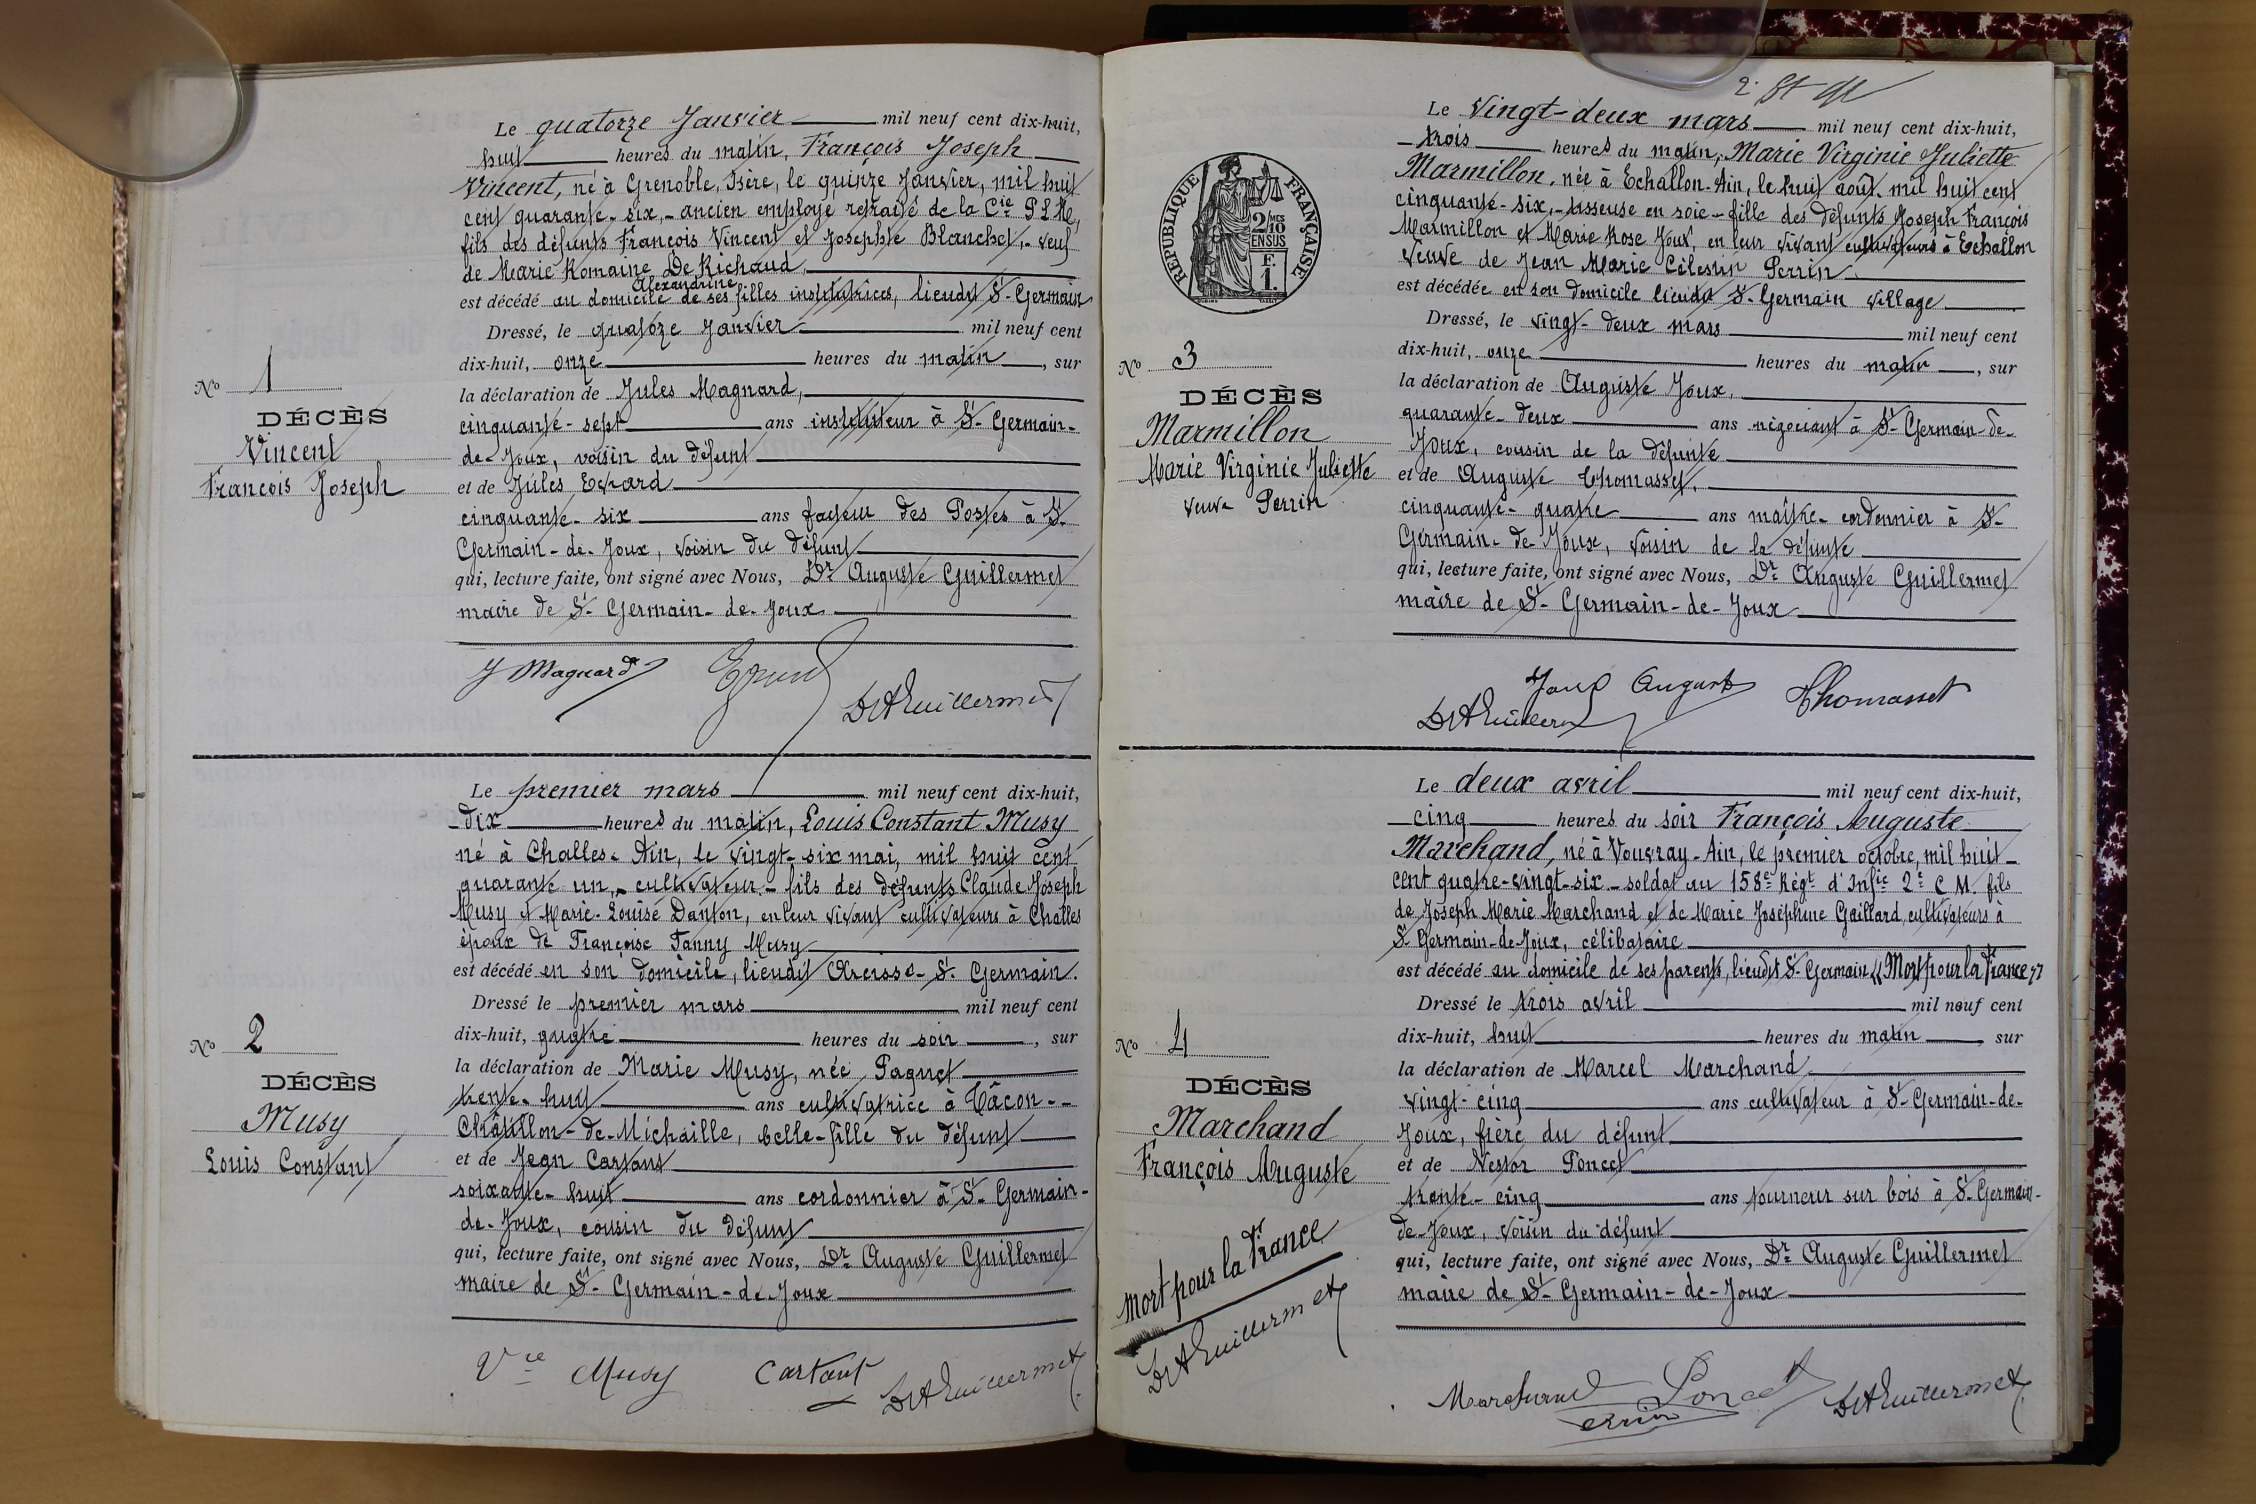 Le quatorze Janvier mil neuf cent dix-huit,
huit heures du matin, François Joseph
Vincent, né à Grenoble, Isère, le quinze Janvier, mil huit
cent quarante-six, - ancien employé retraité de la Cie P L M,
fils des défunts François Vincent et Josephte Blanchet, - veuf
de Marie Romaine De Richaud,
Alexandrine
est décédé au domicile de ses filles institutrices, lieudit St-Germain
Dressé, le quatorze Janvier mil neuf cent
dix-huit, onze heures du matin, sur
la déclaration de Jules Magnard,
cinquante-sept ans instituteur à St-Germain-
de-Joux, voisin du défunt
et de Jules Evrard
cinquante-six ans facteur des Postes à St-
Germain-de-Joux, voisin du défunt
qui, lecture faite, ont signé avec Nous, Dr Auguste Guillermet
maire de St-Germain-de-Joux
No 1
DÉCÈS
Vincent
François Joseph
J Magnard
DrAGuillermet
Le premier mars mil neuf cent dix-huit,
dix heures du matin, Louis Constant Musy
né à Challes-Ain, le vingt-six mai, mil huit cent
quarante un, - cultivateur - fils des défunts Claude Joseph
Musy et Marie-Louise Danton, en leur vivant cultivateurs à Challes
époux de Françoise Fanny Musy
est décédé en son domicile, lieudit
St-Germain.
Dressé le premier mars mil neuf cent
dix-huit, quatre heures du soir, sur
la déclaration de Marie Musy, née Paquet
trente-huit ans cultivatrice à Tâcon-
Châtillon-de-Michaille, belle-fille du défunt
et de Jean Cartant
soixante-huit ans cordonnier à St-Germain-
de-Joux, cousin du défunt
qui, lecture faite, ont signé avec Nous, Dr Auguste Guillermet
maire de St-Germain-de-Joux
No 2
DÉCÈS
Musy
Louis Constant
Vve Musy Cartant DrAGuillermet
RÉPUBLIQUE FRANÇAISE
2/10 MES
EN SUS
F.
1.
Le vingt-deux mars mil neuf cent dix-huit,
trois heures du matin, Marie Virginie Juliette
Marmillon, née à Echallon-Ain, le huit août, mil huit cent
cinquante-six, - tisseuse en soie - fille des défunts Joseph François
Marmillon et Marie Rose Joux, en leur vivant cultivateurs à Echallon
Veuve de Jean Marie Célestin Perrin
est décédée en son domicile lieudit St-Germain village
Dressé, le vingt-deux mars mil neuf cent
dix-huit, onze heures du matin, sur
la déclaration de Auguste Joux,
quarante-deux ans négociant à St-Germain-de-
Joux, cousin de la défunte
et de Auguste Thomasset,
cinquante-quatre ans maître-cordonnier à St-
Germain-de-Joux, voisin de la défunte
qui, lecture faite, ont signé avec Nous, Dr Auguste Guillermet
maire de St-Germain-de-Joux
No 3
DÉCÈS
Marmillon
Marie Virginie Juliette
veuve Perrin
Joux August Thomasset
DrAGuillerm
Le deux avril mil neuf cent dix-huit,
cinq heures du soir François Auguste
Marchand, né à Vouvray-Ain, le premier octobre, mil huit-
cent quatre-vingt-six - soldat au 158e Régt d'Infie 2e C M. fils
de Joseph Marie Marchand et de Marie Joséphine Gaillard, cultivateurs à
St Germain-de-Joux, célibataire
est décédé au domicile de ses parents, lieudit St-Germain "Mort pour la France"
Dressé le trois avril mil neuf cent
dix-huit, huit heures du matin, sur
la déclaration de Marcel Marchand
vingt-cinq ans cultivateur à St-Germain-de-
Joux, frère du défunt
et de Nestor Poncet
trente-cinq ans tourneur sur bois à St-Germain-
de-Joux, voisin du défunt
qui, lecture faite, ont signé avec Nous, Dr Auguste Guillermet
maire de St-Germain-de-Joux
No 4
DÉCÈS
Marchand
François Auguste
Mort pour la France
DrAGuillermet
Marchand Poncet DrAGuillermet